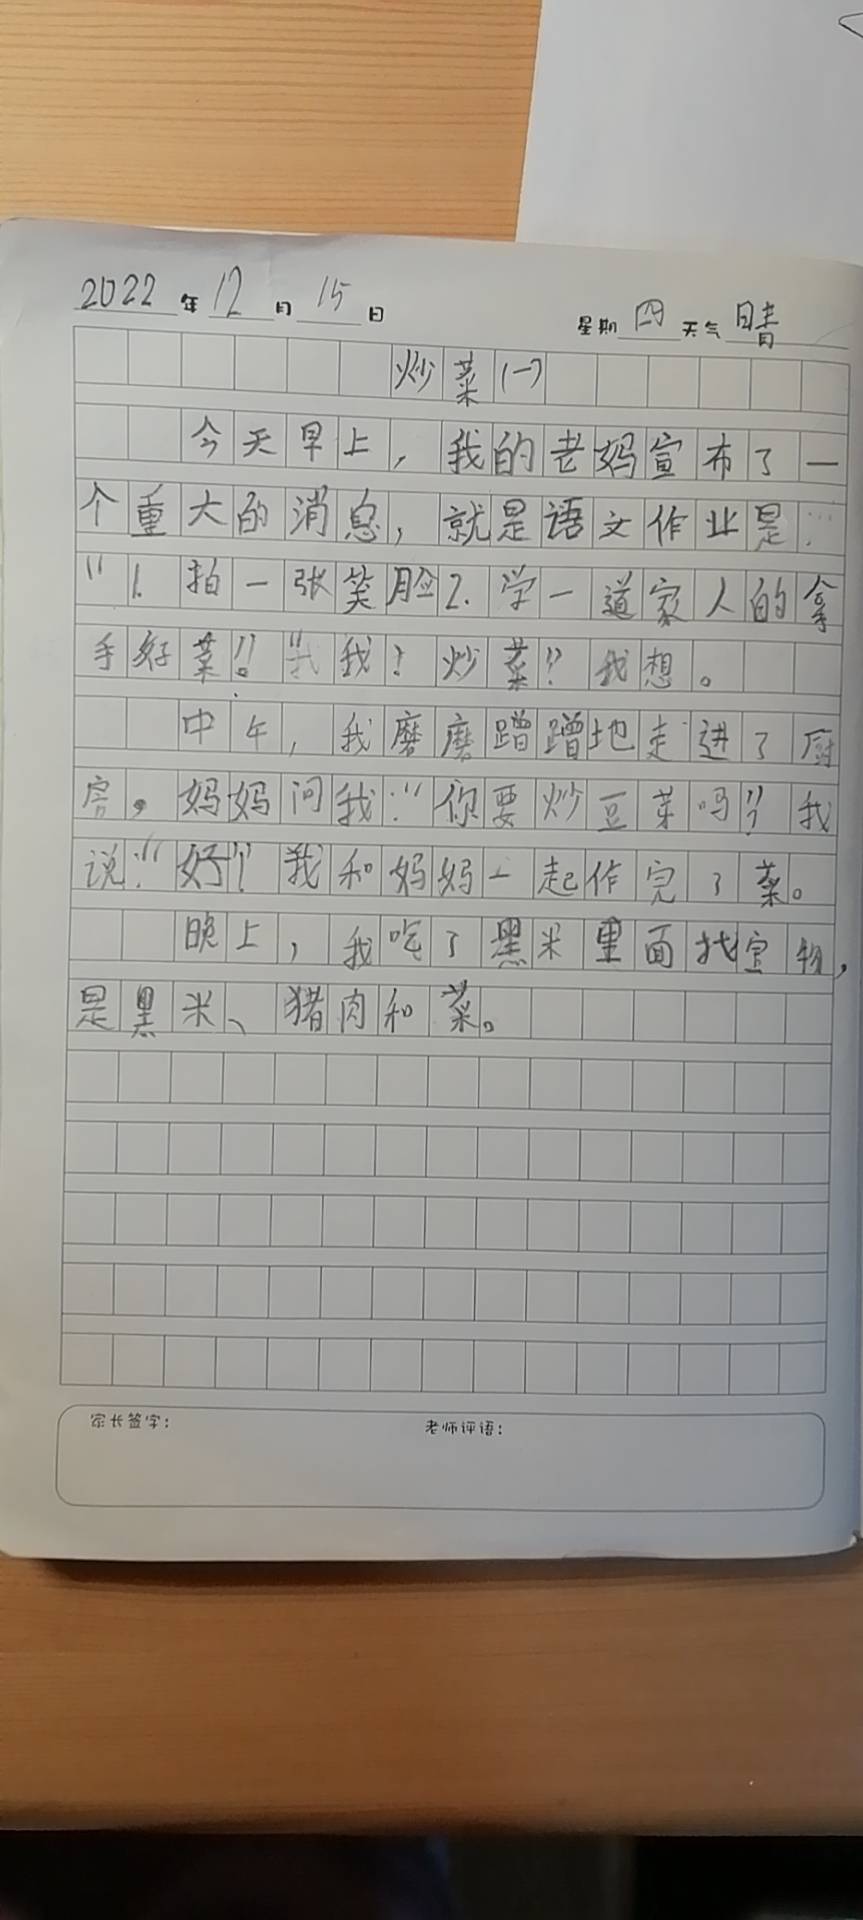 2022年12月15日 星期四 天气晴
炒菜(一)
今天早上，我的老妈宣布了一
个重大的消息，就是语文作业是：
“1.拍一张笑脸2.学一道家人的拿
手好菜！”“我！炒菜？”我想。
中午，我磨磨蹭蹭地走进了厨
房。妈妈问我：“你要炒豆芽吗？”我
说：“好！”我和妈妈一起作完了菜。
晚上，我吃了黑米里面找宝物，
是黑米、猪肉和菜。
家长签字： 老师评语：